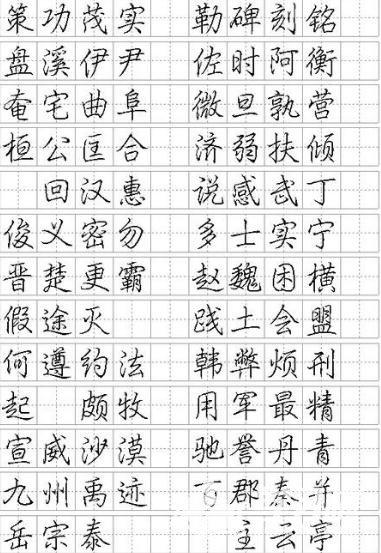 策功茂实 勒碑刻铭
盘溪伊尹 佐时阿衡
奄宅曲阜 微旦孰营
桓公匡合 济弱扶倾
回汉惠 说感武丁
俊义密勿 多士实宁
晋楚更霸 赵魏困横
假途灭 践土会盟
何遵约法 韩弊烦刑
起 颇牧 用军最精
宣威沙漠 驰誉丹青
九州禹迹 百郡秦并
岳宗泰 主云亭